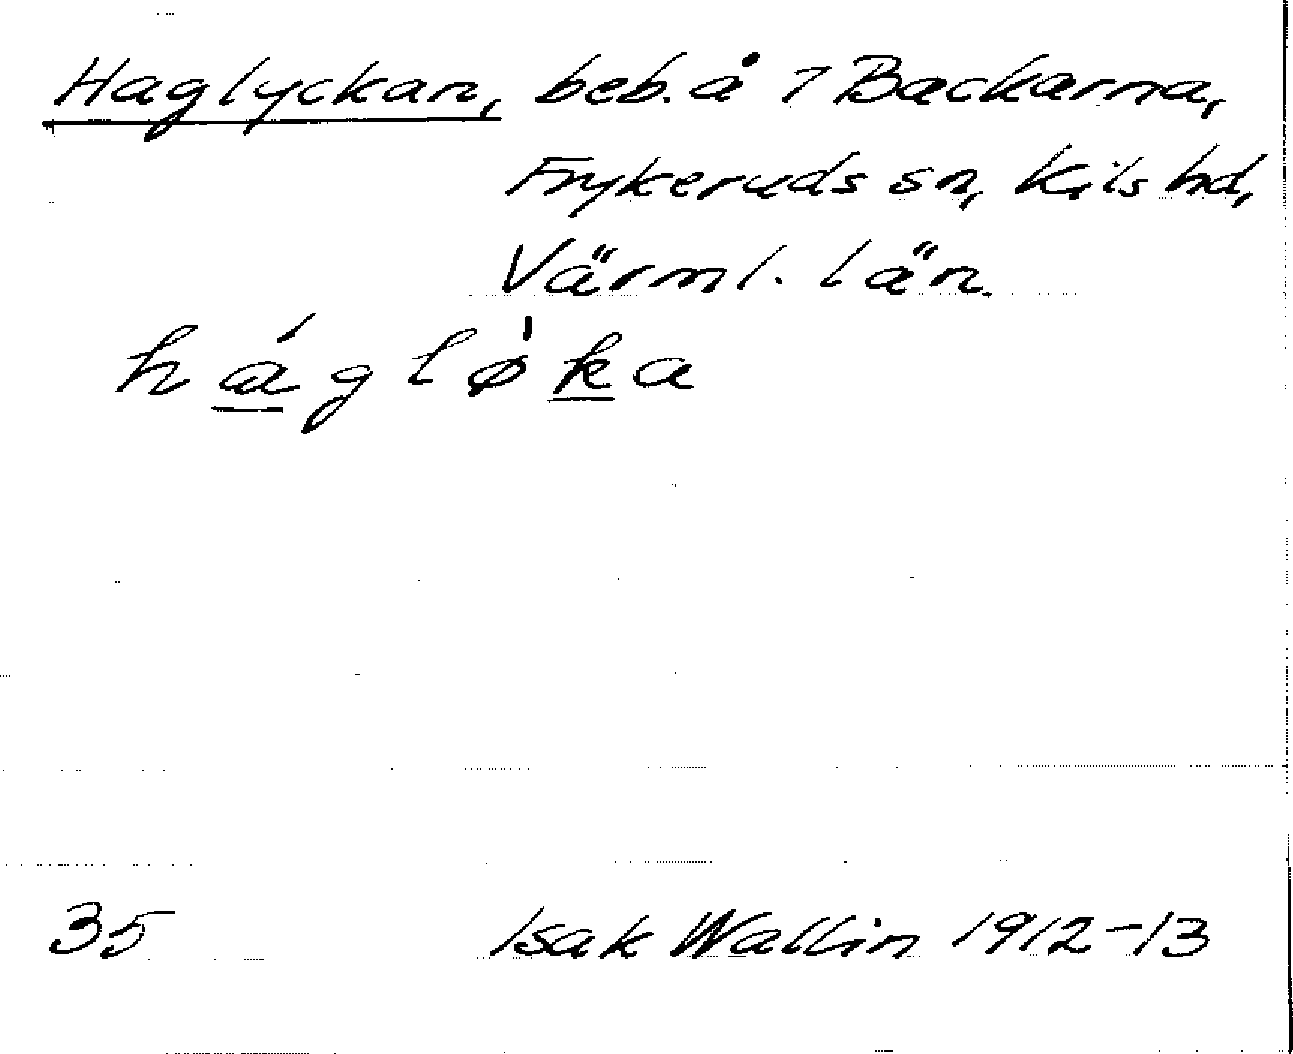 Haglyckan, beb. å 7 Backarna,
Frykeruds sn, Kils hd,
Värml. län.
háglø̍ka
35 Isak Wallin 1912-13